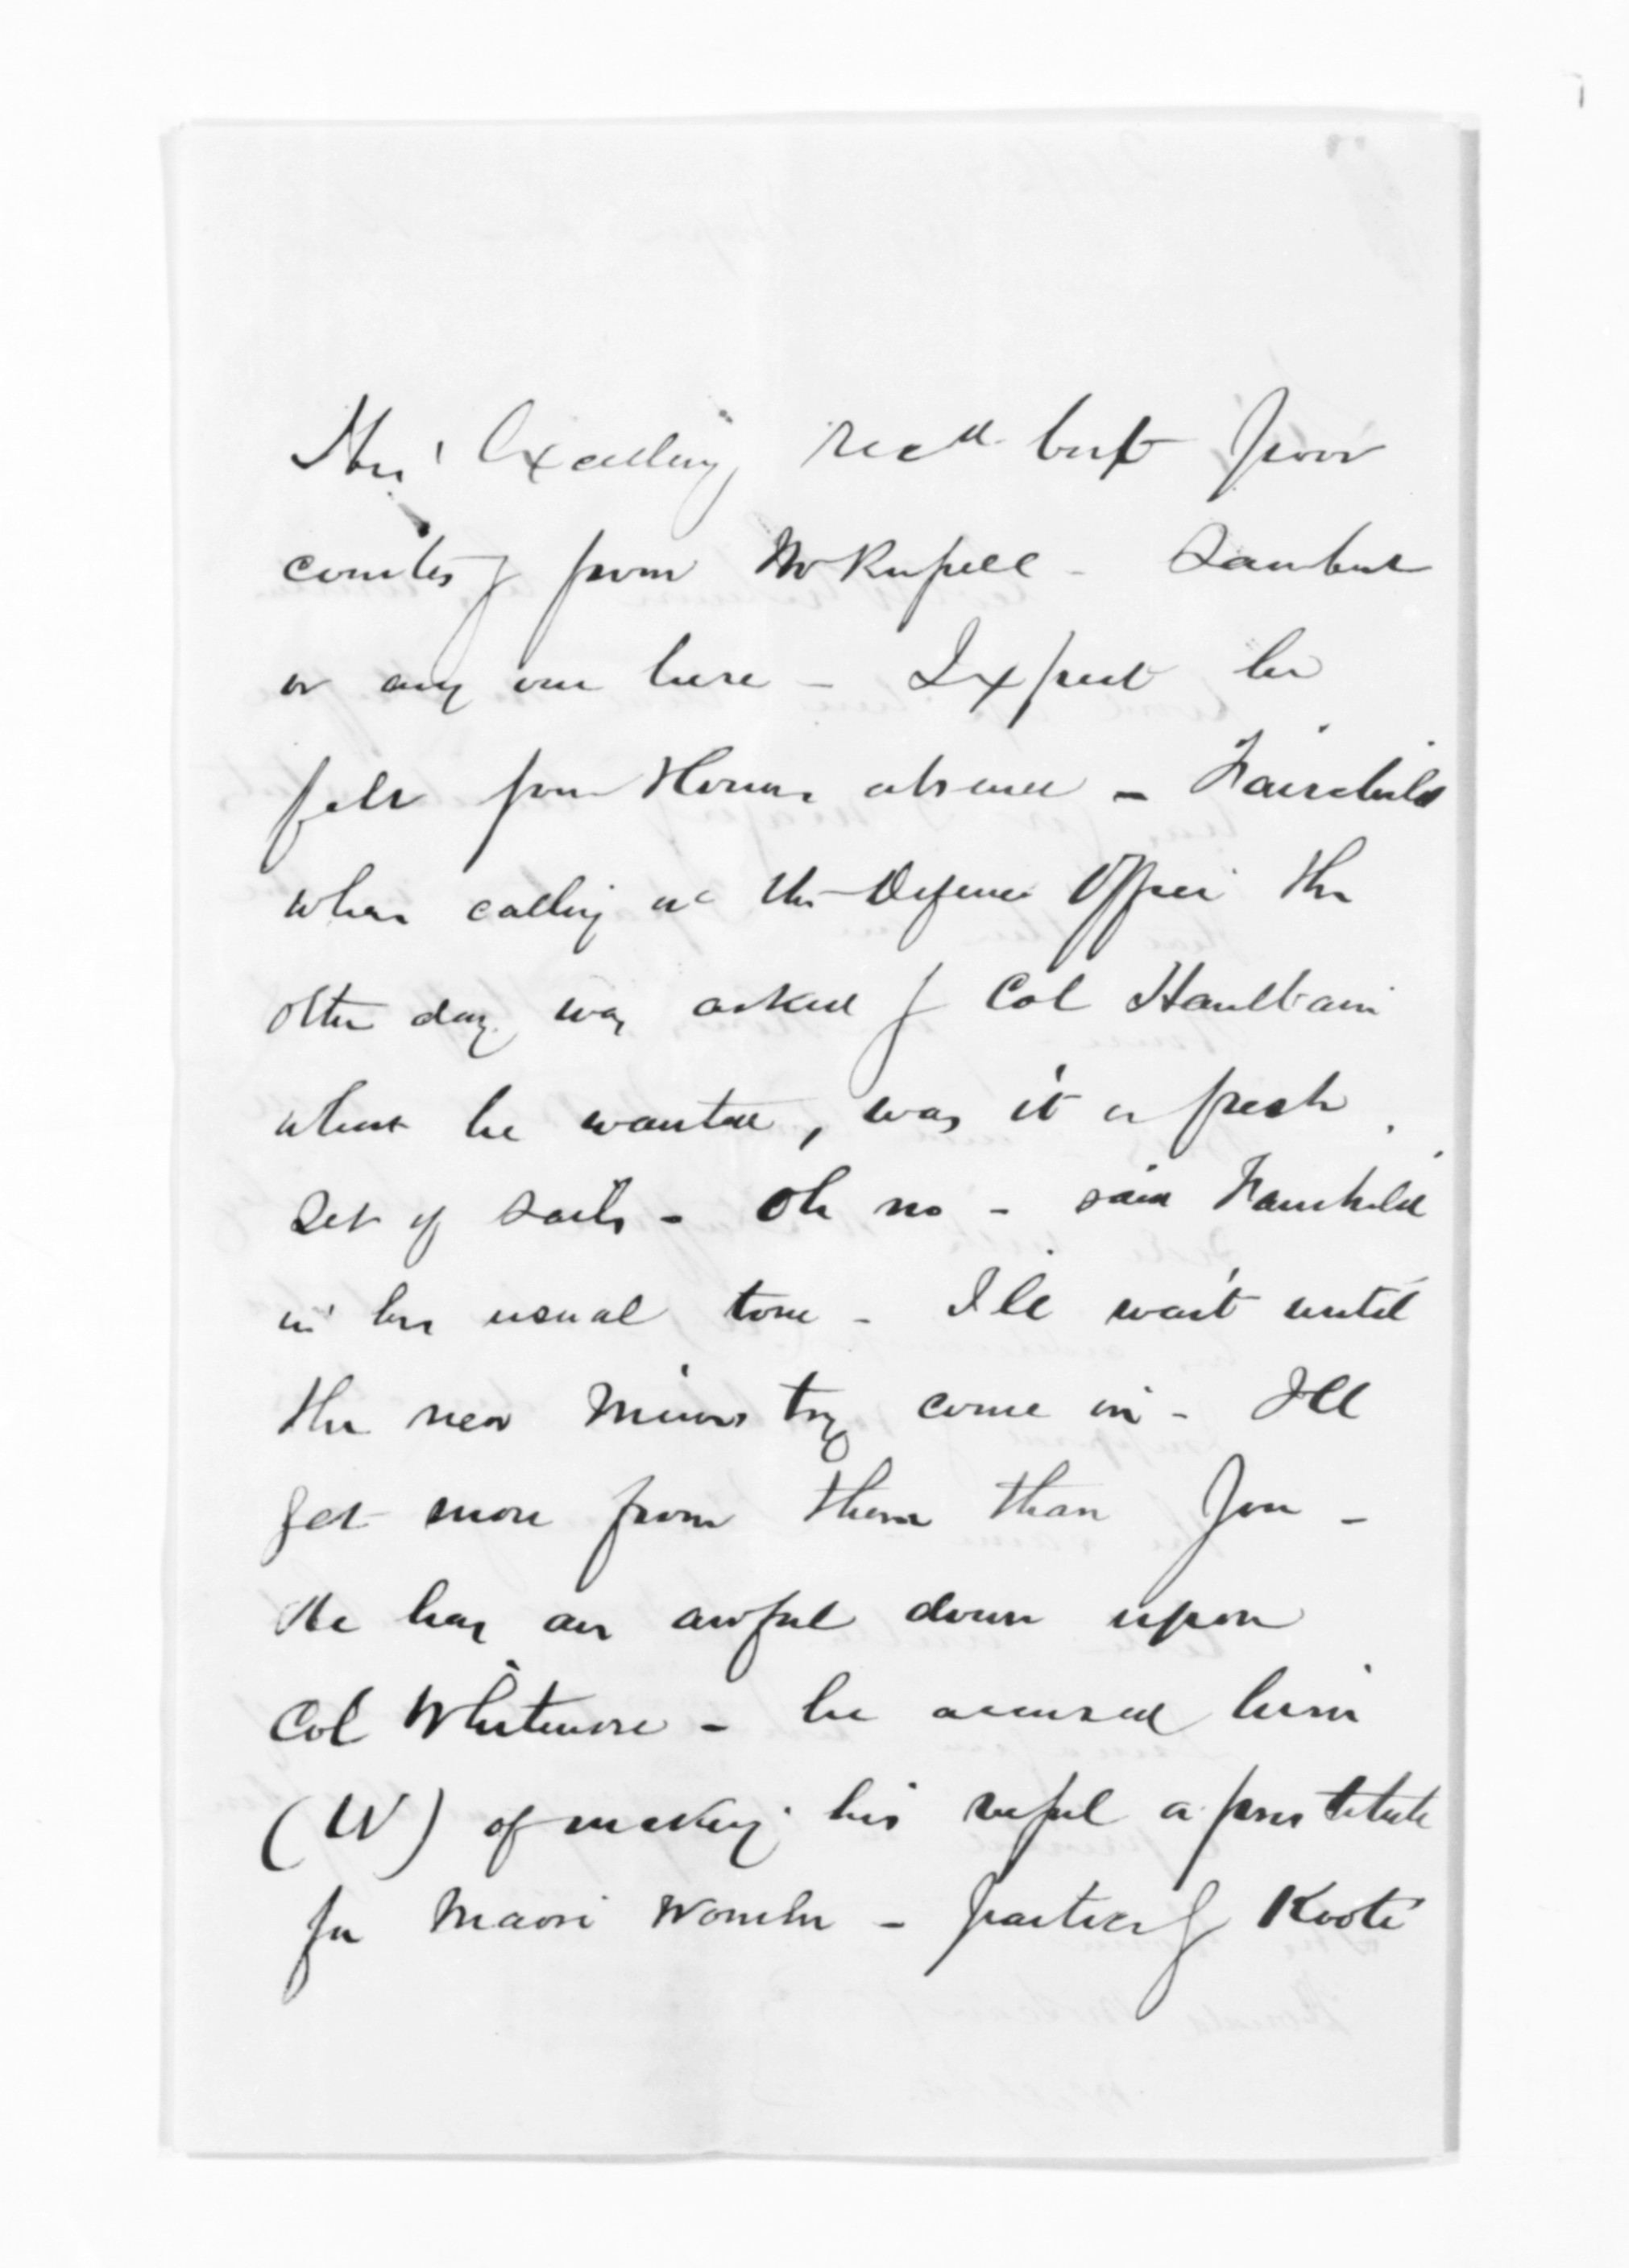 His Excellency recd but poor
courtesy from Mr Russell - Lambert
or any one here - I expect he
felt your Honors absence - Fairchild
when calling at the Defence Office the
other day was asked by Col Haultain
what he wanted, was it a fresh
set of sails - Oh no - said Fairchild
in his usual tone - Ill wait until
the new Ministry come in - Ill
get more from them than you -
He has an awful down upon
Col Whitmore - he accused him
(W) of making his vessel a prostitute
for Maori Women - parties of Kooti